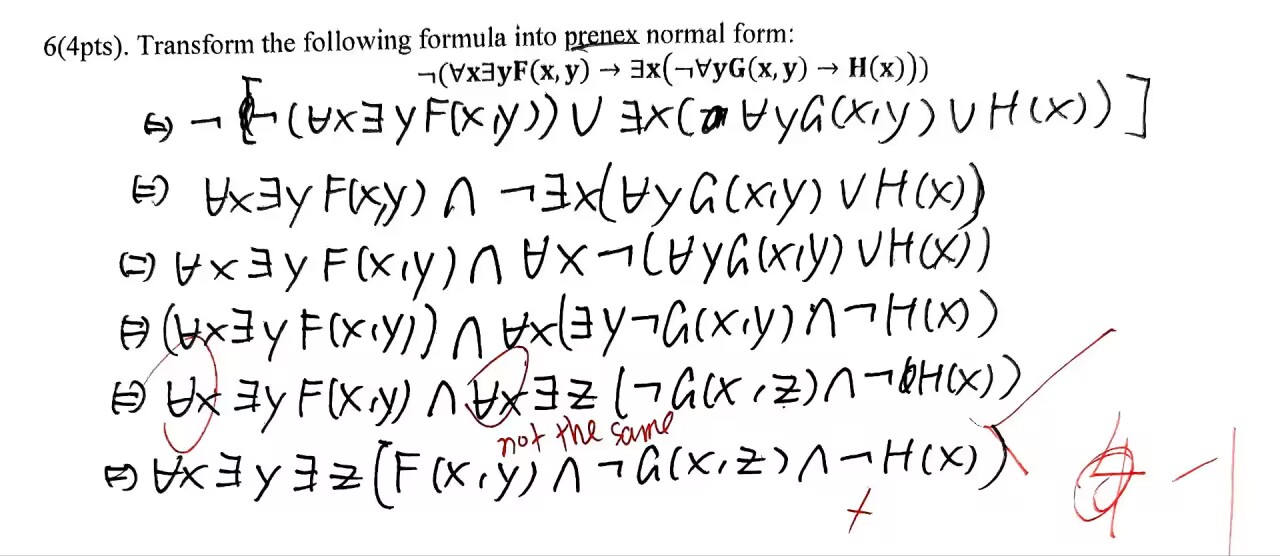 6(4pts). Transform the following formula into prenex normal form:
¬(∀x∃yF(x, y) → ∃x(¬∀yG(x, y) → H(x)))
⇔ ¬ [¬(∀x∃yF(x,y)) ∨ ∃x(∀yG(x,y) ∨ H(x))]
⇔ ∀x∃y F(x,y) ∧ ¬∃x(∀yG(x,y) ∨ H(x))
⇔ ∀x∃y F(x,y) ∧ ∀x ¬(∀yG(x,y) ∨ H(x))
⇔ (∀x∃y F(x,y)) ∧ ∀x(∃y¬G(x,y) ∧ ¬H(x))
⇔ ∀x ∃y F(x,y) ∧ ∀x ∃z (¬G(x,z) ∧ ¬H(x))
not the same
⇔ ∀x ∃y ∃z (F(x,y) ∧ ¬G(x,z) ∧ ¬H(x))
-1